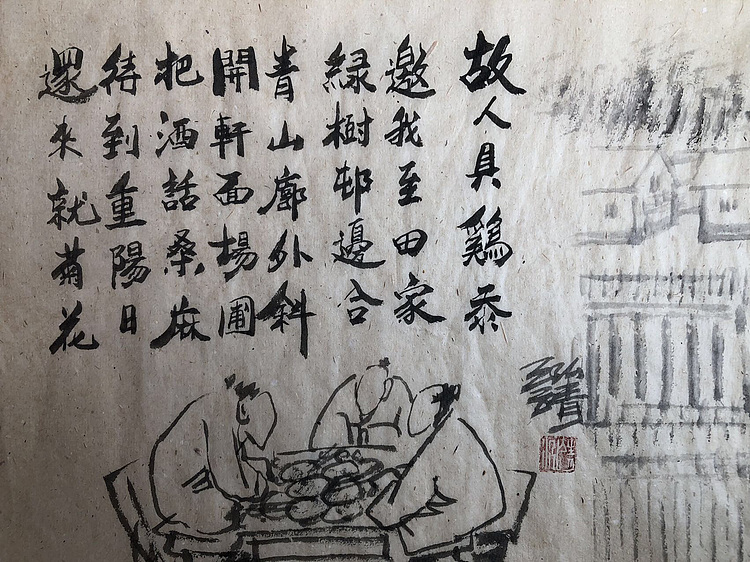 故人具鷄黍
邀我至田家
緑樹邨邊合
青山廓外斜
開軒面場圃
把酒話桑麻
待到重陽日
還来就菊花